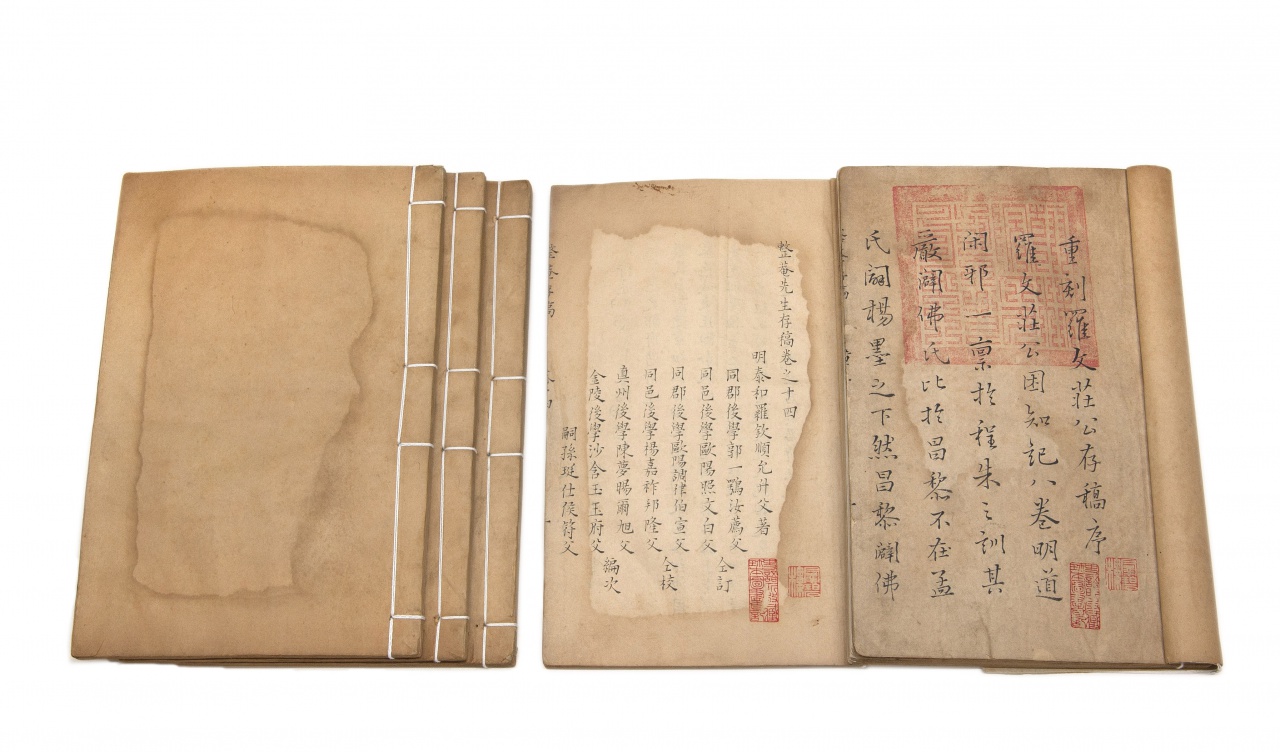 重刻羅文莊公存稿序
羅文莊公困知記八卷明道
閑邪一稟於程朱之訓其
嚴闢佛氏比於昌黎不在孟
氏闢楊墨之下然昌黎闢佛
整菴先生存稿卷之十四
明泰和羅欽順允升父著
同郡後學郭一鶚汝薦父
同邑後學歐陽照文白父
仝訂
同郡後學歐陽諴律伯宣父
同邑後學楊嘉祚邦隆父
仝校
真州後學陳夢暘爾旭父
金陵後學沙含玉玉府父
編次
嗣孫珽仕侯符父
整菴存稿